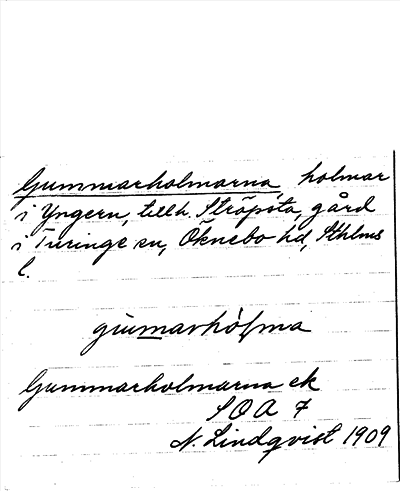 Gummarholmarna, holmar
i Yngern, tillh. Ströpsta, gård
i Turinge sn, Öknebo hd, Sthlms
l.
gu̇marhòḷma
Gummarholmarna ek
SOA 7
N. Lindqvist 1909